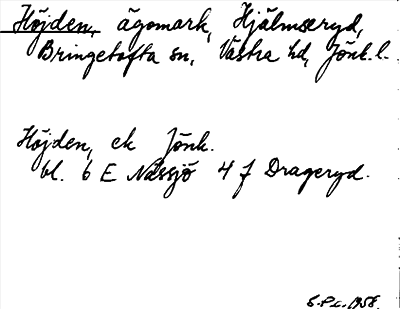 Höjden, ägomark, Hjälmseryd,
Bringetofta sn, Västra hd, Jönk. l.
Höjden, ek Jönk.
bl. 6 E Nässjö 4 f Drageryd.
1958.